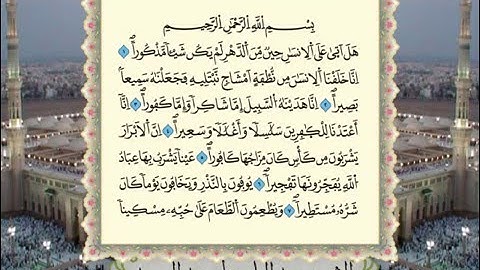 بِسْمِ ٱللَّهِ ٱلرَّحْمَٰنِ ٱلرَّحِيمِ
هَلْ أَتَىٰ عَلَى ٱلْإِنسَٰنِ حِينٌ مِّنَ ٱلدَّهْرِ لَمْ يَكُن شَيْـًٔا مَّذْكُورًا ١
إِنَّا خَلَقْنَا ٱلْإِنسَٰنَ مِن نُّطْفَةٍ أَمْشَاجٍ نَّبْتَلِيهِ فَجَعَلْنَٰهُ سَمِيعًۢا
بَصِيرًا ٢ إِنَّا هَدَيْنَٰهُ ٱلسَّبِيلَ إِمَّا شَاكِرًا وَإِمَّا كَفُورًا ٣ إِنَّآ
أَعْتَدْنَا لِلْكَٰفِرِينَ سَلَٰسِلَا۟ وَأَغْلَٰلًا وَسَعِيرًا ٤ إِنَّ ٱلْأَبْرَارَ
يَشْرَبُونَ مِن كَأْسٍ كَانَ مِزَاجُهَا كَافُورًا ٥ عَيْنًا يَشْرَبُ بِهَا عِبَادُ
ٱللَّهِ يُفَجِّرُونَهَا تَفْجِيرًا ٦ يُوفُونَ بِٱلنَّذْرِ وَيَخَافُونَ يَوْمًا كَانَ
شَرُّهُۥ مُسْتَطِيرًا ٧ وَيُطْعِمُونَ ٱلطَّعَامَ عَلَىٰ حُبِّهِۦ مِسْكِينًا